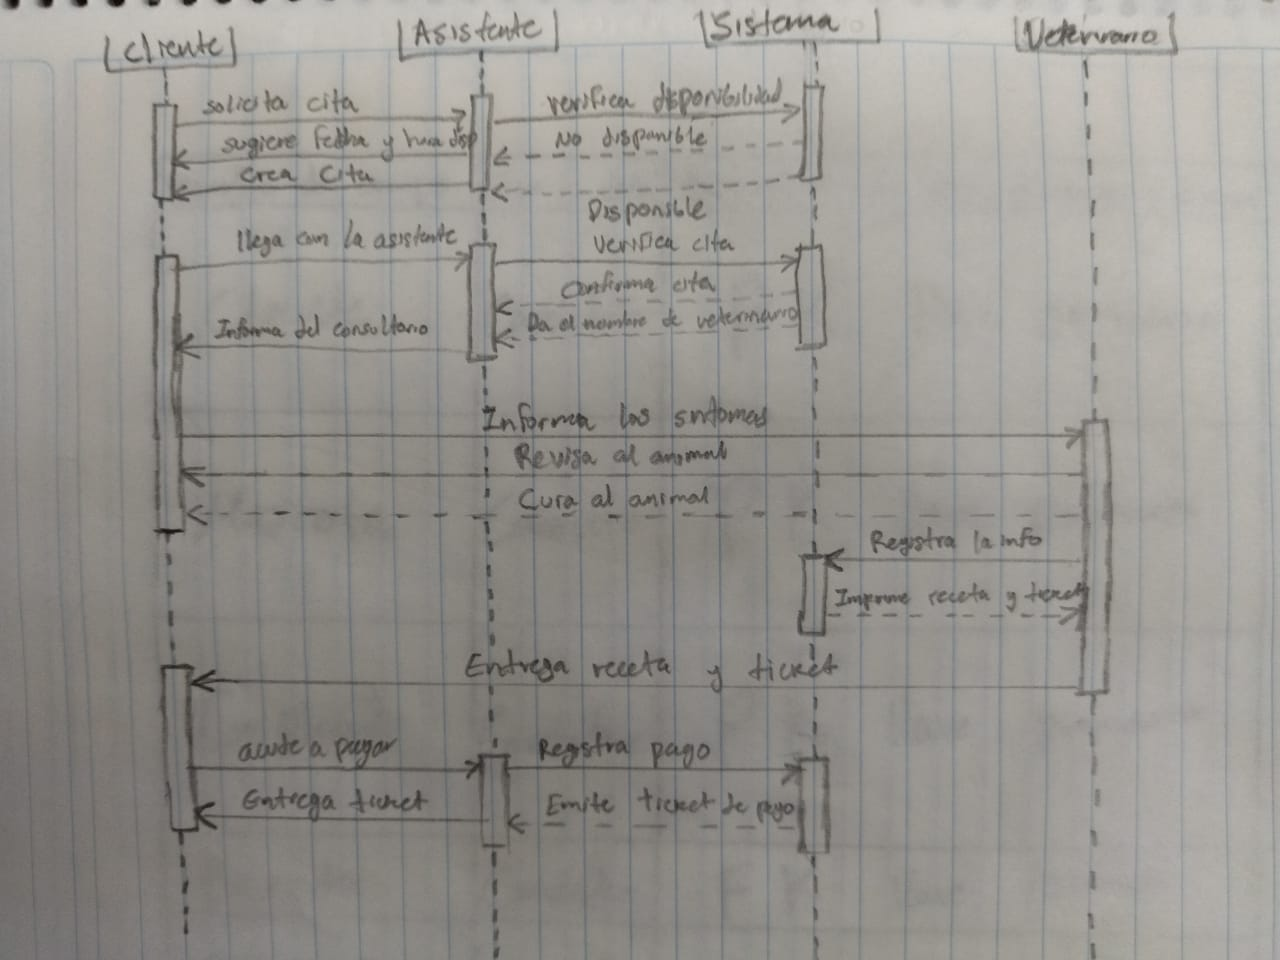 Cliente
Asistente
Sistema
Veterinario
solicita cita
verifica disponibilidad
sugiere fecha y hora disp
No disponible
crea cita
Disponible
llega con la asistente
verifica cita
Confirma cita
Informa del consultorio
Da el nombre de veterinario
Informa los sintomas
Revisa al animal
Cura al animal
Registra la info
Imprime receta y ticket
Entrega receta y ticket
acude a pagar
Registra pago
Entrega ticket
Emite ticket de pago